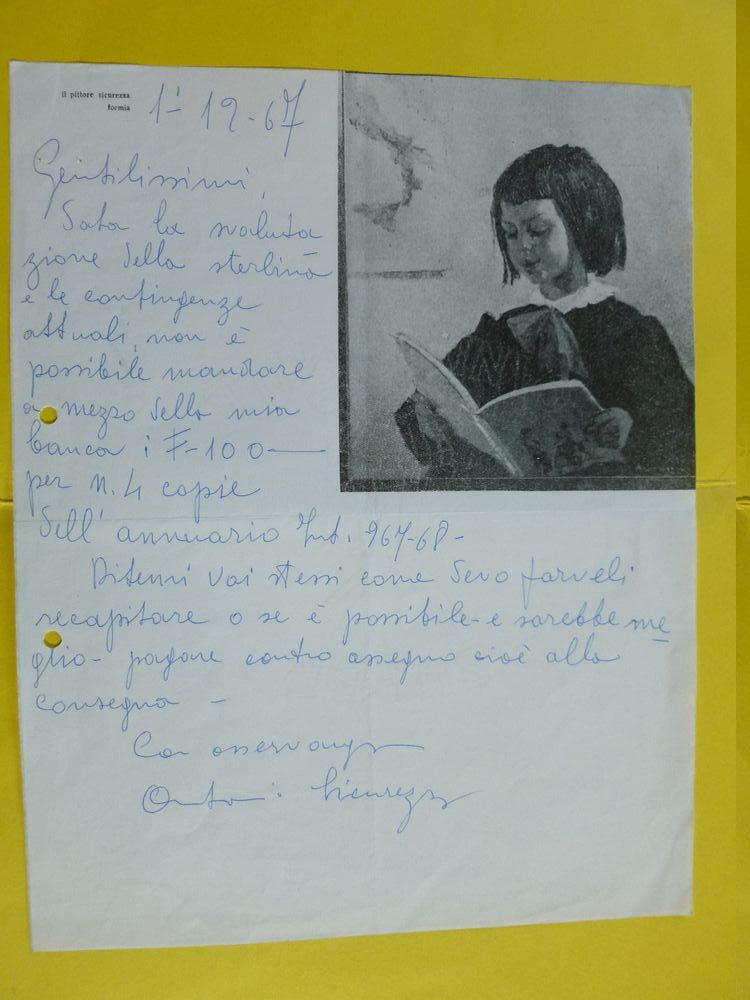 il pittore sicurezza
formia
1-12-67
Gentilissimi,
Data la svaluta
zione della sterlina
e le contingenze
attuali, non è
possibile mandare
a mezzo della mia
banca i F-100—
per N. 4 copie
dell'annuario Int. 967-68-
Ditemi voi stessi come devo farveli
recapitare o se è possibile - e sarebbe me
glio - pagare contro assegno cioè alla
consegna -
Con osservanza
Sicurezza